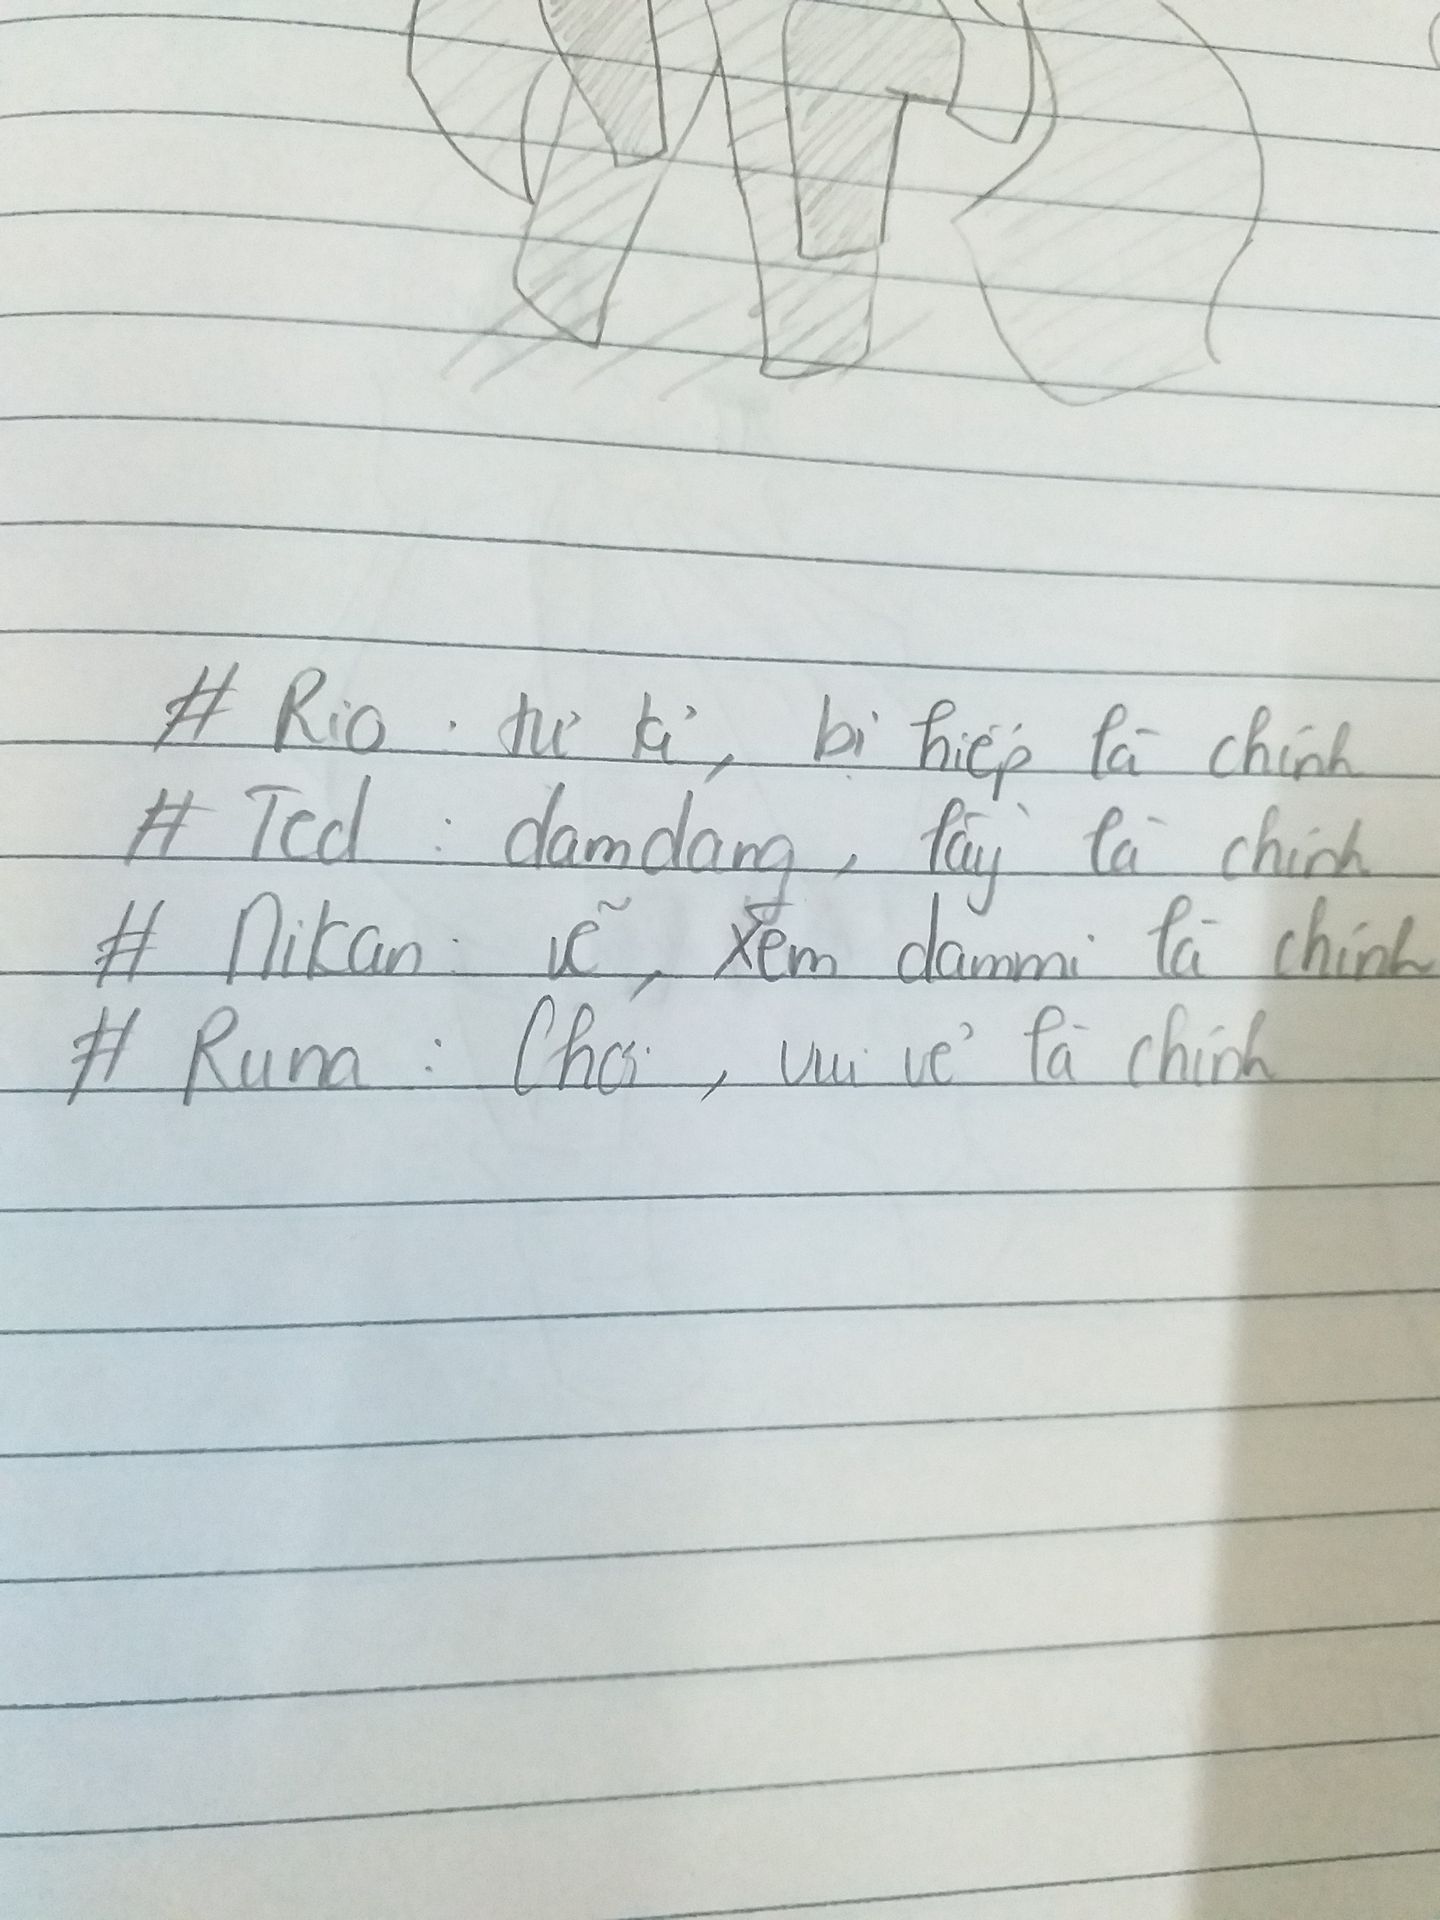 # Rio : tự kỉ, bị hiếp là chính
# Ted : damdang, lầy là chính
# Mikan : vẽ, xem dammi là chính
# Runa : Chơi, vui vẻ là chính